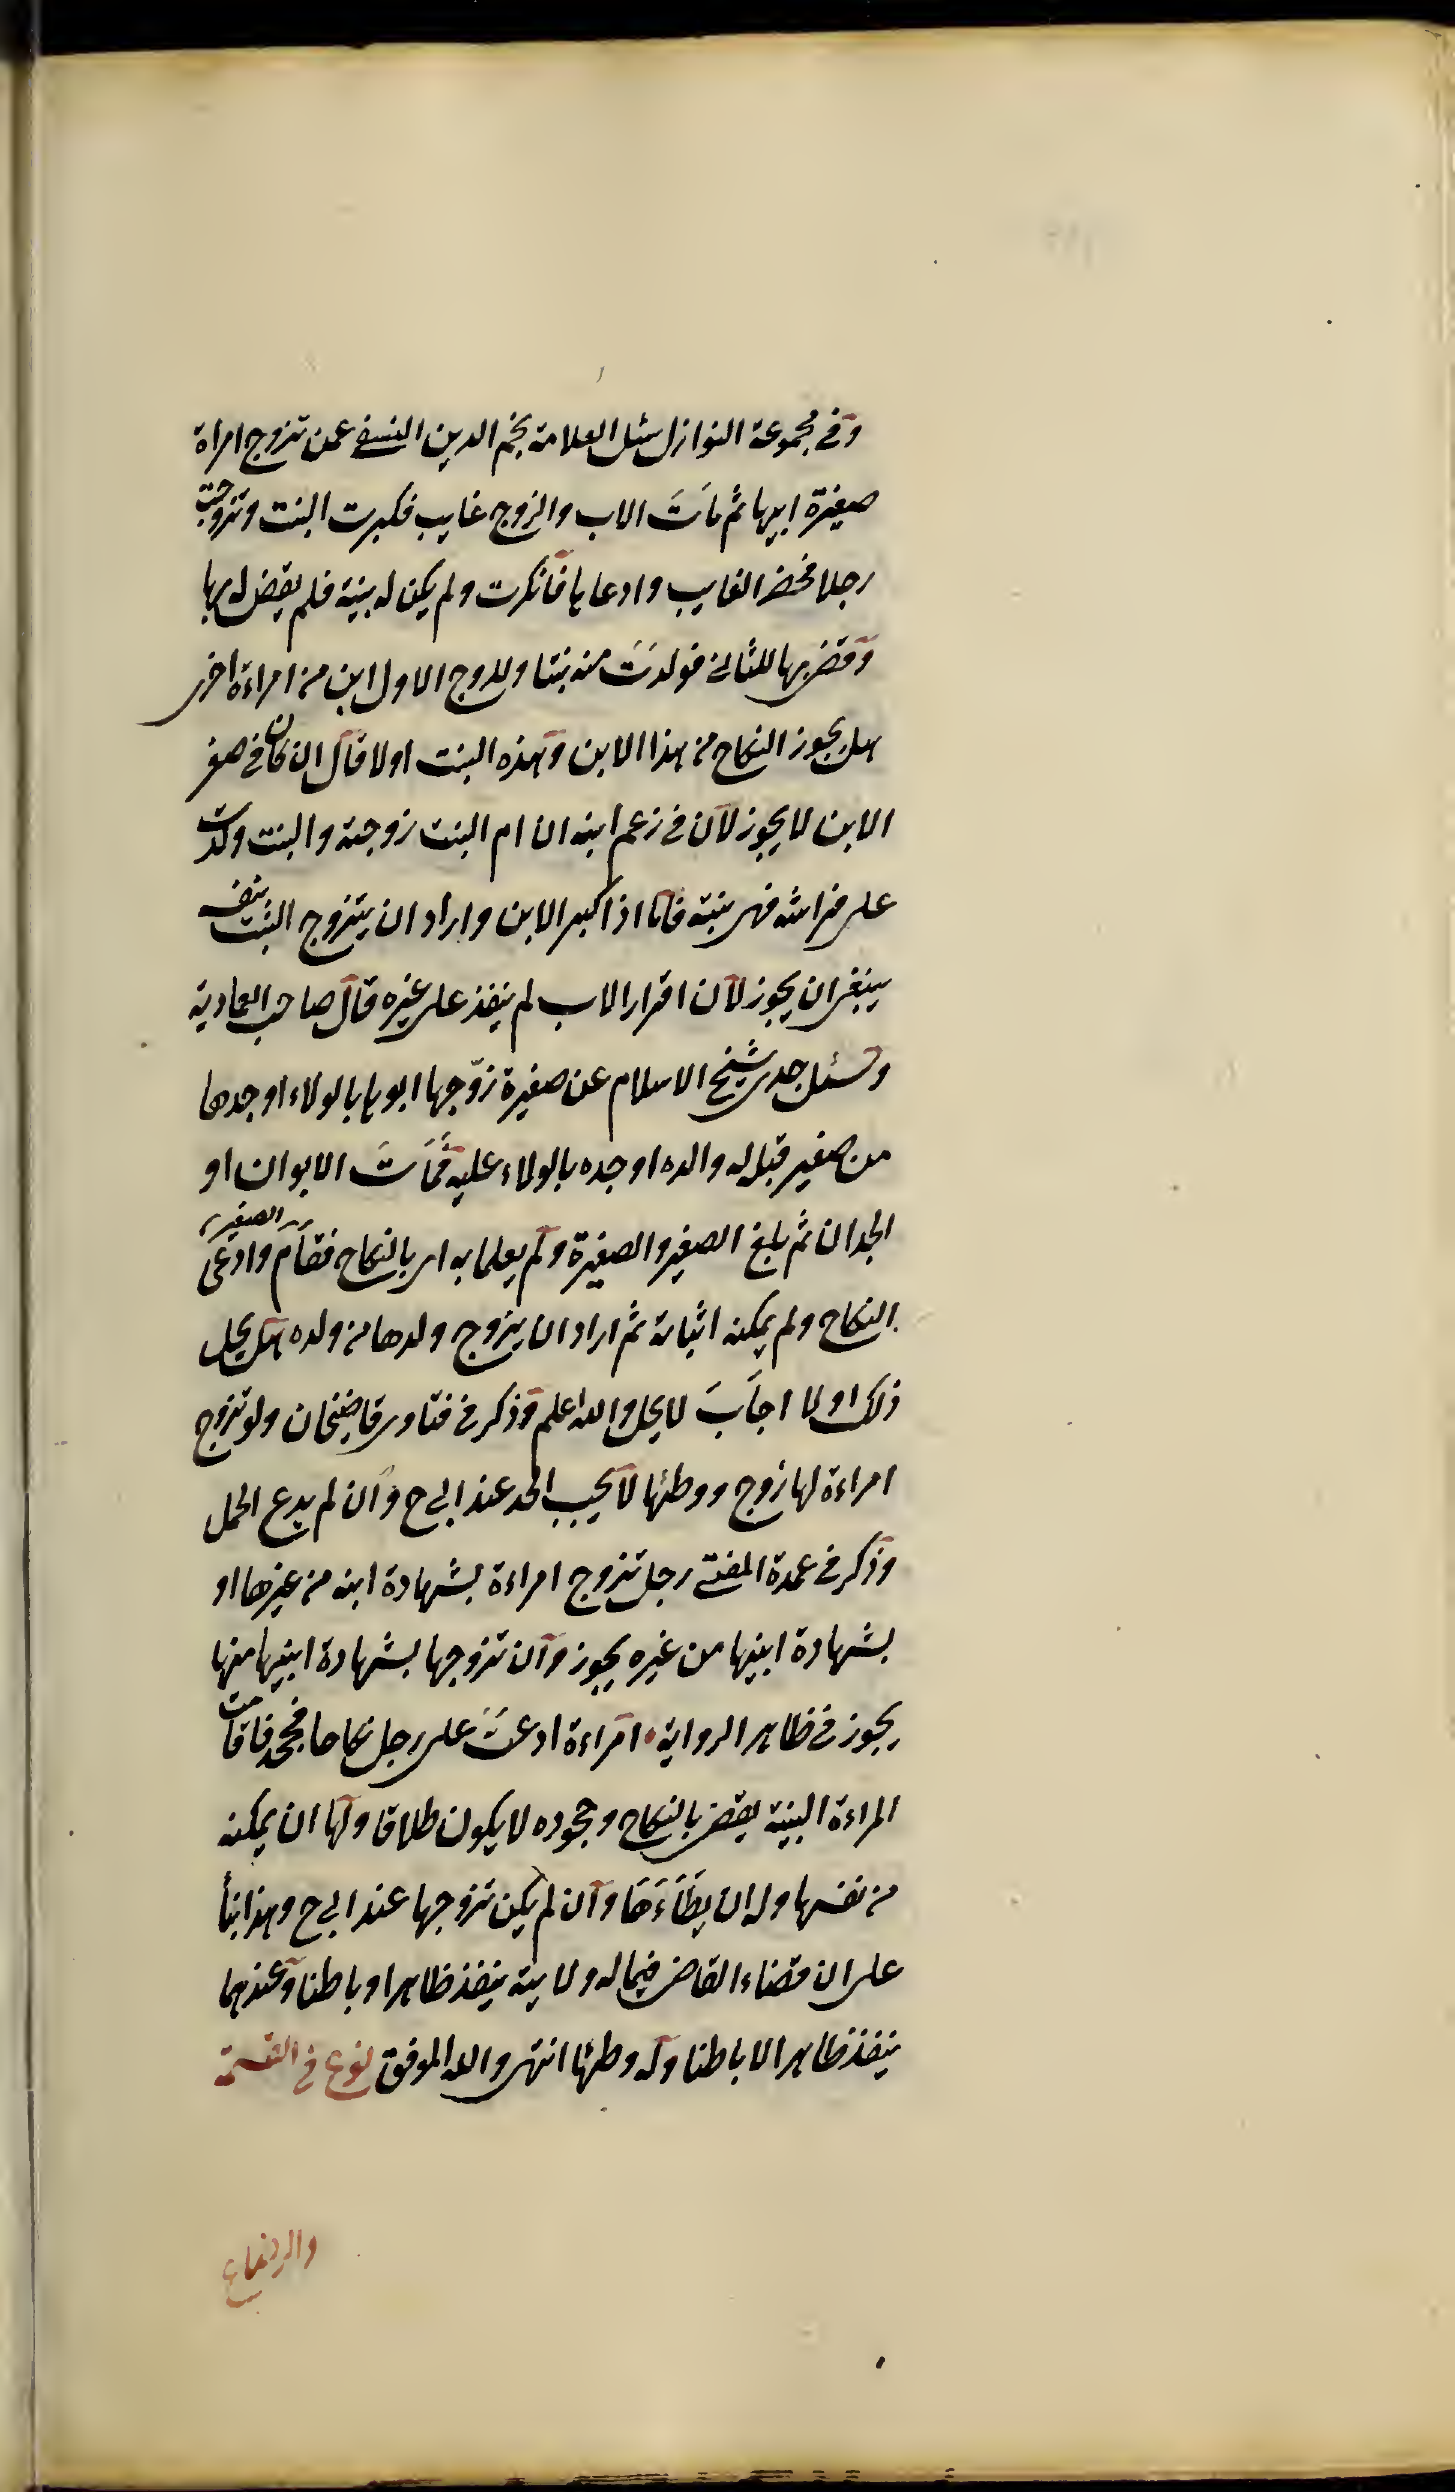 وفى مجموعة النوازل سئل العلامة نجم الدين النسفى عمن تزوج امراة
صغيرة ابيها ثم مات الاب والزوج غايب فكبرت البنت وتزوجت
رجلا فحضر الغايب وادعاها فانكرت ولم يكن له بينة فلم يقض له بها
وقضى بها للثانى فولدت منه بنتا وللزوج الاول ابن من امراءة اخرى
هل يجوز النكاح من هذا الابن وهذه البنت اولا قال ان كان فى صغر
الابن لا يجوز لان فى زعم ابيه ان ام البنت زوجته والبنت ولدت
على فراشه فهى بنته فاما اذا كبر الابن واراد ان يتزوج البنت بنفسه
ينبغى ان يجوز لان اقرار الاب لم ينفذ على غيره قال صاحب العمادية
وسئل جدى شيخ الاسلام عن صغيرة زوّجها ابوها بالولاء اوجدها
من صغير قبل له والده اوجده بالولاء عليه فمات الابوان او
الجدان ثم بلغ الصغير والصغيرة ولم يعلما به اى بالنكاح فقام الصغير وادعى
النكاح ولم يمكنه اثباته ثم اراد ان يزوج ولدها من ولده هل يحل
ذلك اولا اجاب لا يحل والله اعلم وذكر فى فتاوى قاضيخان ولو تزوج
امراءة لها زوج ووطئها لا يجب الحد عند ابى ح وان لم يدع الحل
وذكر فى عمدة المفتى رجل تزوج امراءة بشهادة ابنيه من غيرها او
بشهادة ابنيها من غيره يجوز وان تزوجها بشهادة ابنيهما منها
يجوز فى ظاهر الرواية امراءة ادعت على رجل نكاحا فجحد فاقامت
المراءة البينة يقضى بالنكاح وجحوده لا يكون طلاقا ولها ان يمكنه
من نفسها وله ان يطاءها وان لم يكن تزوجها عند ابى ح وهذا بنأ
على ان قضاء القاضى فيما له ولاية ينفذ ظاهرا وباطنا وعندهما
ينفذ ظاهرا لا باطنا وله وطئها انتهى والله الموفق نوع فى القسمة
والرضاع